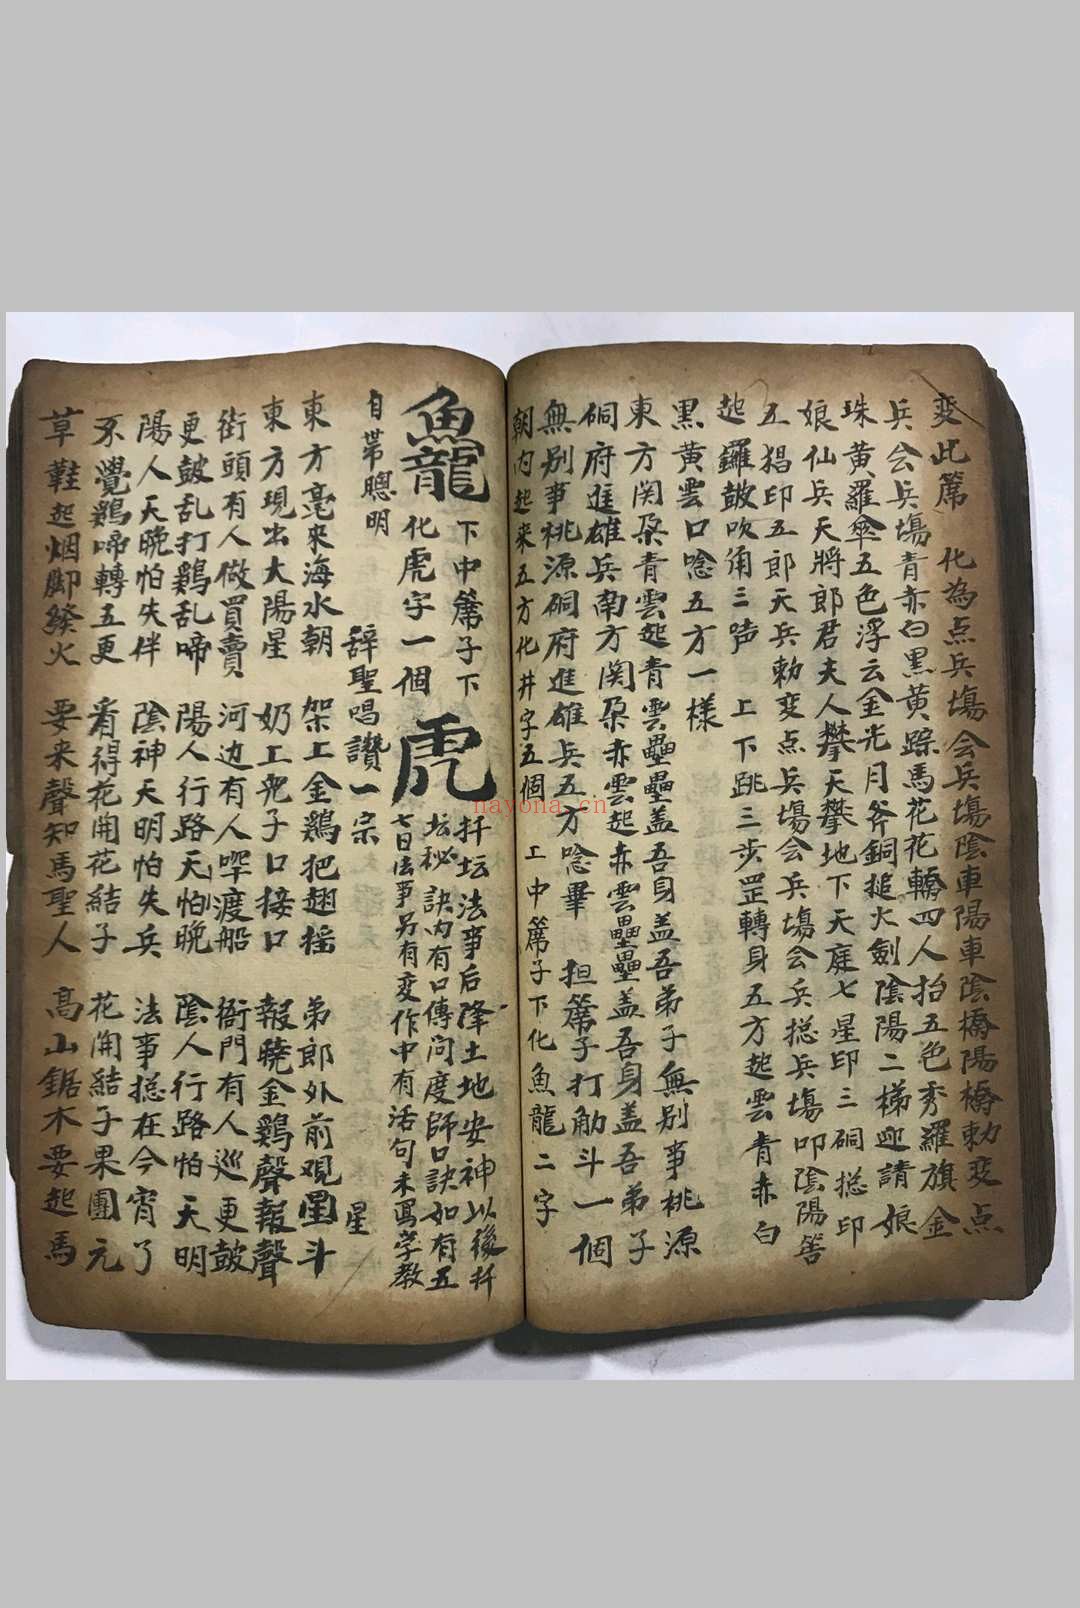 变此簟 化為点兵塲会兵塲陰車陽車陰橋陽橋勅变点
兵会兵塲青赤白黑黄踪馬花花轎四人抬五色秀羅旗金
珠黄羅傘五色浮云金光月斧銅搥火劍陰陽二梯迎請娘
娘仙兵天將郎君夫人攀天攀地下天庭七星印三硐捴印
五猖印五郎天兵勅变点兵塲会兵塲会兵捴兵塲叩陰陽筶
起鑼鼓吹角三声 上下跳三步罡轉身五方起雲青赤白
黑黄雲口唸五方一樣
東方関朶青雲起青雲壘壘盖吾身盖吾弟子無别事桃源
硐府進雄兵南方関朶赤雲起赤雲壘壘盖吾身盖吾弟子
無别事桃源硐府進雄兵五方唸畢 担簟子打觔斗一個
朝内起来五方化井字五個 上中簟子下化魚龍二字
魚龍 下中簟子下化虎字一個 虎 扦坛法事后降土地安神以後扦
坛秘訣内有口傳问度師口訣如有五
七日法事另有变作中有活句未寫学教
自帯聰明
辞聖唱讚一宗 星
東方亮來海水朝 架上金鷄把翅摇 弟郎外前观星斗
東方現出大陽星 奶上兜子口接口 報曉金鷄聲報聲
街頭有人做買賣 河边有人喤渡船 衙門有人巡更鼓
更鼓乱打鷄乱啼 陽人行路天怕晚 陰人行路怕天明
陽人天晚怕失伴 陰神天明怕失兵 法事捴在今宵了
不覺鷄啼轉五更 看得花開花結子 花開結子果團元
草鞋起烟脚發火 要来聲知馬聖人 高山鋸木要起馬
nayona.cn